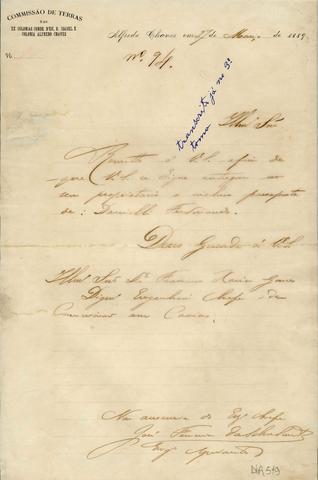 COMMISSÃO DE TERRAS
NAS
EX COLONIAS CONDE D'EU, D. ISABEL E
COLONIA ALFREDO CHAVES
N.
Alfredo Chaves em 27 de Março de 1889
Nº 94.
transcrito já no 3º
tomo
Illmº Snr
Remetto á V.S. afim de
que V.S. se digne entregar ao
seu proprietario o incluso passaporte
de: Fernando.
Deos Guarde á V.S.
Illmº Snr Dr Francisco Xavier
Dignº Engenheiro Chefe da
Commissão em Caxias.
Na ausencia do Engº Chefe
José Ferreira
Engº Ajudante
DIR 519